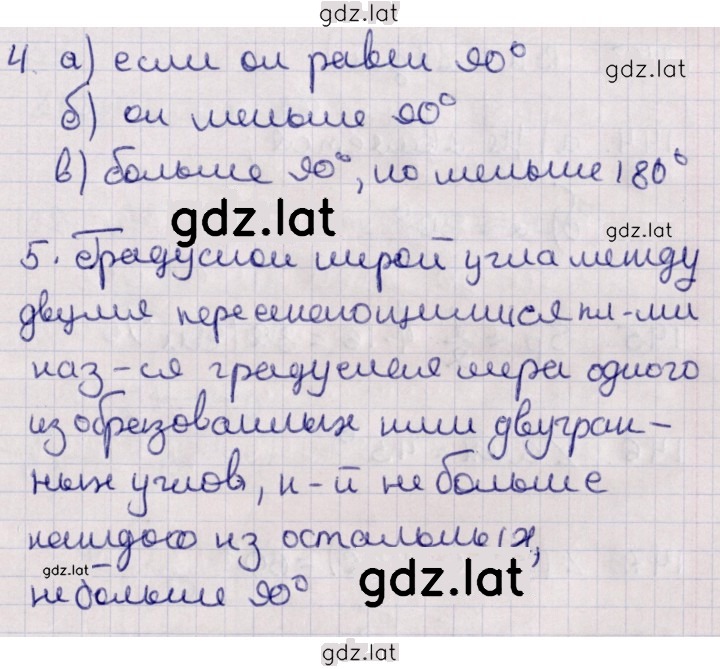 gdz.lat
4. а) если он равен 90°
gdz.lat
б) он меньше 90°
в) больше 90°, но меньше 180°
gdz.lat
gdz.lat
5. Градусной мерой угла между
двумя пересекающимися пл-ми
наз-ся градусная мера одного
из образованных ими двугран-
ных углов, к-й не больше
каждого из остальных,
gdz.lat
gdz.lat
не больше 90°
gdz.lat